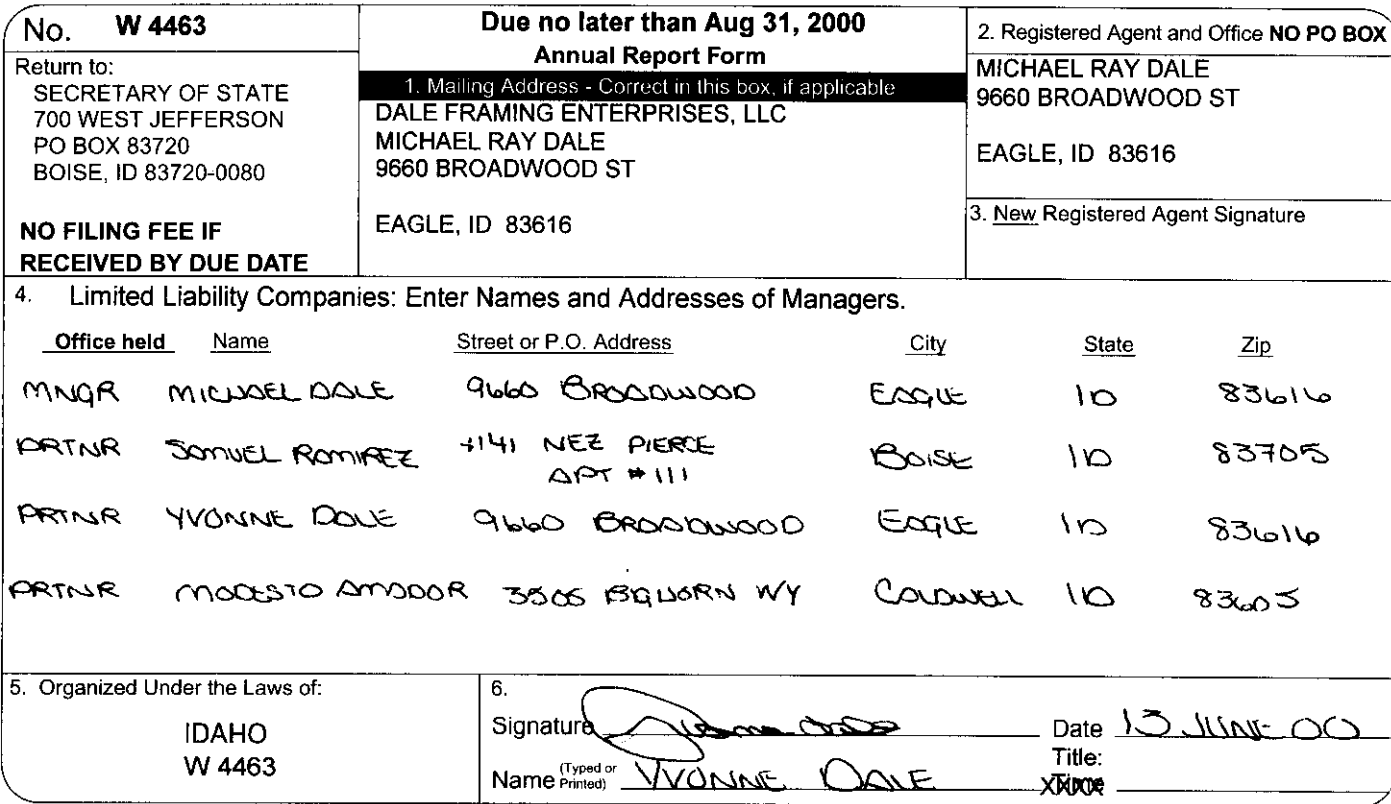 No. W 4463
Return to:
SECRETARY OF STATE
700 WEST JEFFERSON
PO BOX 83720
BOISE, ID 83720-0080
NO FILING FEE IF
RECEIVED BY DUE DATE
Due no later than Aug 31, 2000
Annual Report Form
1. Mailing Address - Correct in this box, if applicable
DALE FRAMING ENTERPRISES, LLC
MICHAEL RAY DALE
9660 BROADWOOD ST
EAGLE, ID 83616
2. Registered Agent and Office NO PO BOX
MICHAEL RAY DALE
9660 BROADWOOD ST
EAGLE, ID 83616
3. New Registered Agent Signature
4. Limited Liability Companies: Enter Names and Addresses of Managers.
Office held Name Street or P.O. Address City State Zip
MNGR MICHAEL DALE 9660 BROADWOOD EAGLE ID 83616
PRTNR SAMUEL RAMIREZ 4141 NEZ PIERCE BOISE ID 83705
APT #111
PRTNR YVONNE DALE 9660 BROADWOOD EAGLE ID 83616
PRTNR MODESTO AMADOR 3505 BIGHORN WY CALDWELL ID 83605
5. Organized Under the Laws of:
IDAHO
W 4463
6.
Signature Yvonne Dale Date 13 JUNE 00
Name (Typed or Printed) YVONNE DALE Title: